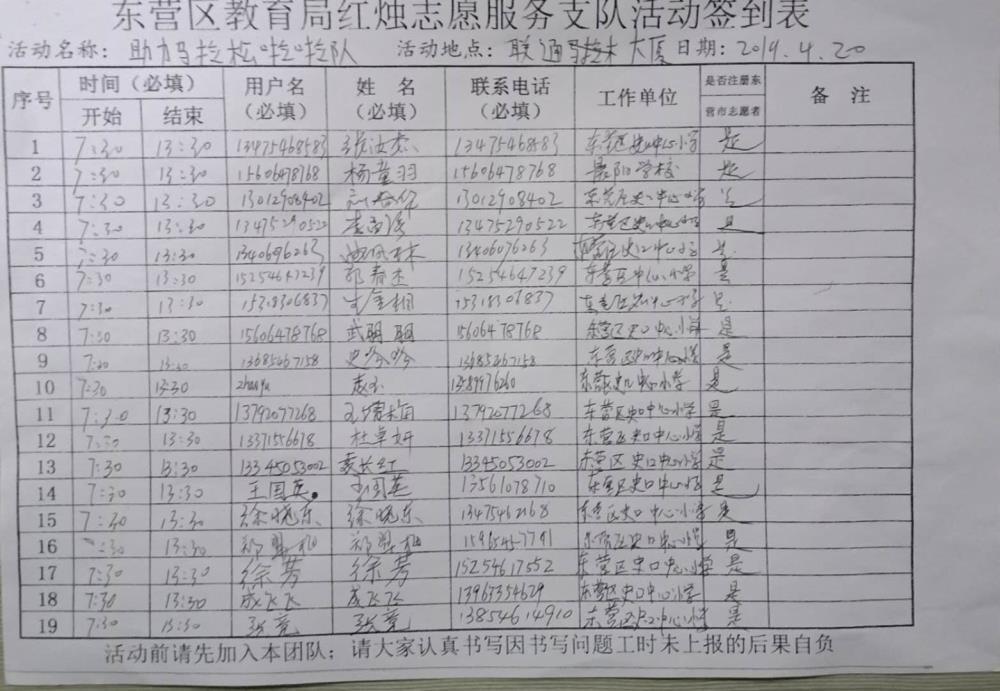 东营区教育局红烛志愿服务支队活动签到表
活动名称：助力马拉松啦啦队 活动地点：联通 大厦 日期：2019.4.20
序号 时间（必填） 用户名（必填） 姓名（必填） 联系电话（必填） 工作单位 是否注册东营市志愿者 备注
开始 结束
1 7:30 13:30 13475468583 13475468583 东营区史口中心小学 是
2 7:30 13:30 15606478768 杨童羽 15606478768 学校 是
3 7:30 13:30 13012908402 13012908402 东营区史口中心小学 是
4 7:30 13:30 13475290522 13475290522 东营区史口中心小学 是
5 7:30 13:30 13406076263 13406076263 东营区史口中心小学 是
6 7:30 13:30 15254647239 郭春杰 15254647239 东营区中心小学 是
7 7:30 13:30 15318306837 15318306837 东营区史口中心小学 是
8 7:30 13:30 15606478768 武明明 15606478768 东营区史口中心小学 是
9 7:30 13:30 13685467158 史吟吟 13685467158 东营区史口中心小学 是
10 7:30 13:30 东营区史口中心小学 是
11 7:30 13:30 13792077268 13792077268 东营区史口中心小学 是
12 7:30 13:30 13371556678 杜卓妍 13371556678 东营区史口中心小学 是
13 7:30 13:30 13345053002 袁长红 13345053002 东营区史口中心小学 是
14 7:30 13:30 王国英 王国英 13561078710 东营区史口中心小学 是
15 7:30 13:30 徐晓东 徐晓东 13475462168 东营区史口中心小学 是
16 7:30 13:30 东营区史口中心小学 是
17 7:30 13:30 徐芳 徐芳 15254617552 东营区史口中心小学 是
18 7:30 13:30 成飞飞 成飞飞 13963354629 东营区史口中心小学 是
19 7:30 13:30 张亮 张亮 13854614910 东营区史口中心小学 是
活动前请先加入本团队；请大家认真书写因书写问题工时未上报的后果自负